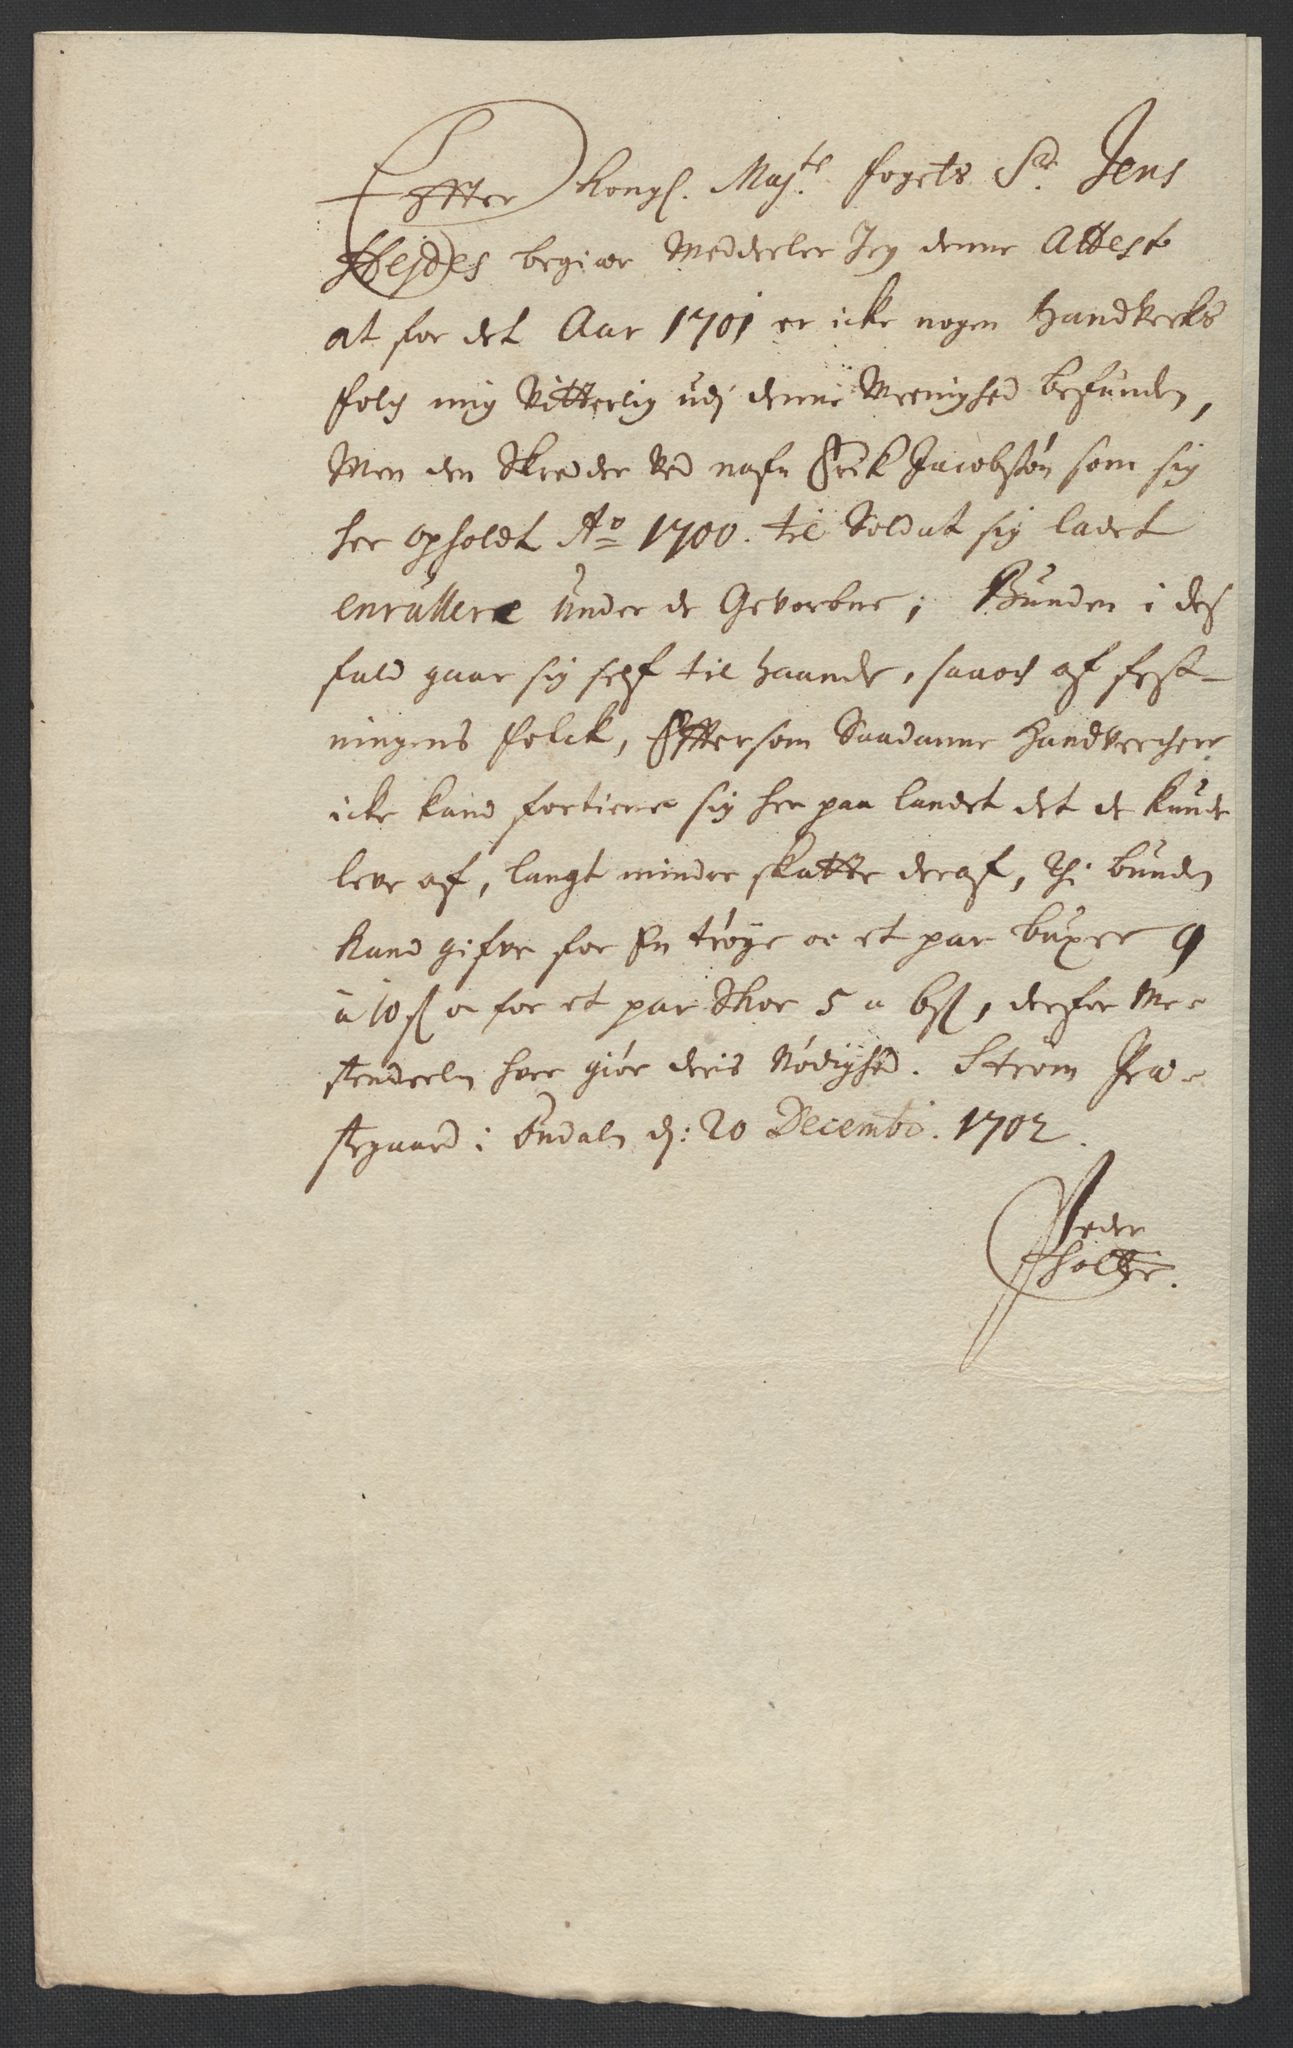 Effter Kongl. Maj.ts fogets Sr. Jens
Hejdes begiær Meddeeler Jeg denne Attest
at for det Aar 1701 er icke nogen Handverks
folch mig Vitterlig udj denne Meenighed befunden,
Men den Skreder Ved nafn Erik Jacobsøn som sig
her opholdt Ao 1700. til Soldat sig ladet
enrullere Under de Gevorbne; Bunden i des
fald gaar sig self til haande, saa och af fest-
ningens folck, Efftersom Saadanne Handvercher
icke kand fortiene sig her paa landet det de kunde
leve af, langt mindre skatte deraf, Thi bunden
kand gifve for En trøye oc et par buxer 9
a 10 s oc for et par Skoe 5 a 6 s, derfor Me-
stendeelen hver giør deris Nødighed. Strøm Præ-
stegaard i Ondalen d: 20 Decembr. 1702.
Peder
Holtzie.